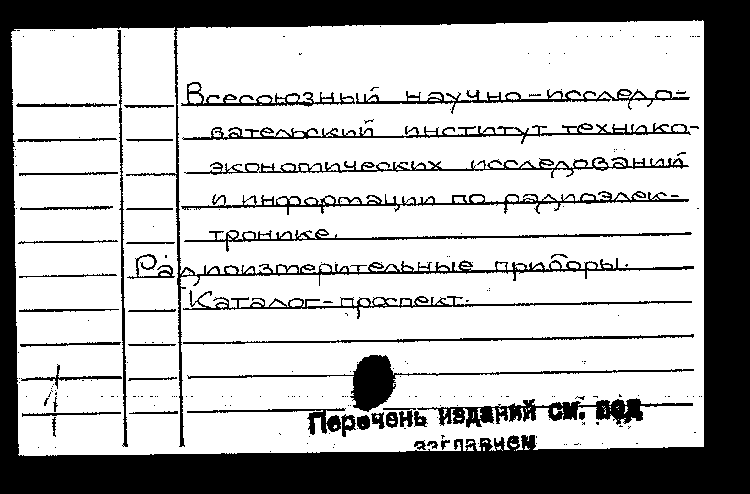 Всесоюзный научно-исследо-
вательский институт технико-
экономических исследований
и информации по радиоэлек-
тронике.
Радиоизмерительные приборы.
Каталог-проспект.
Перечень изданий см. под
заглавием
1